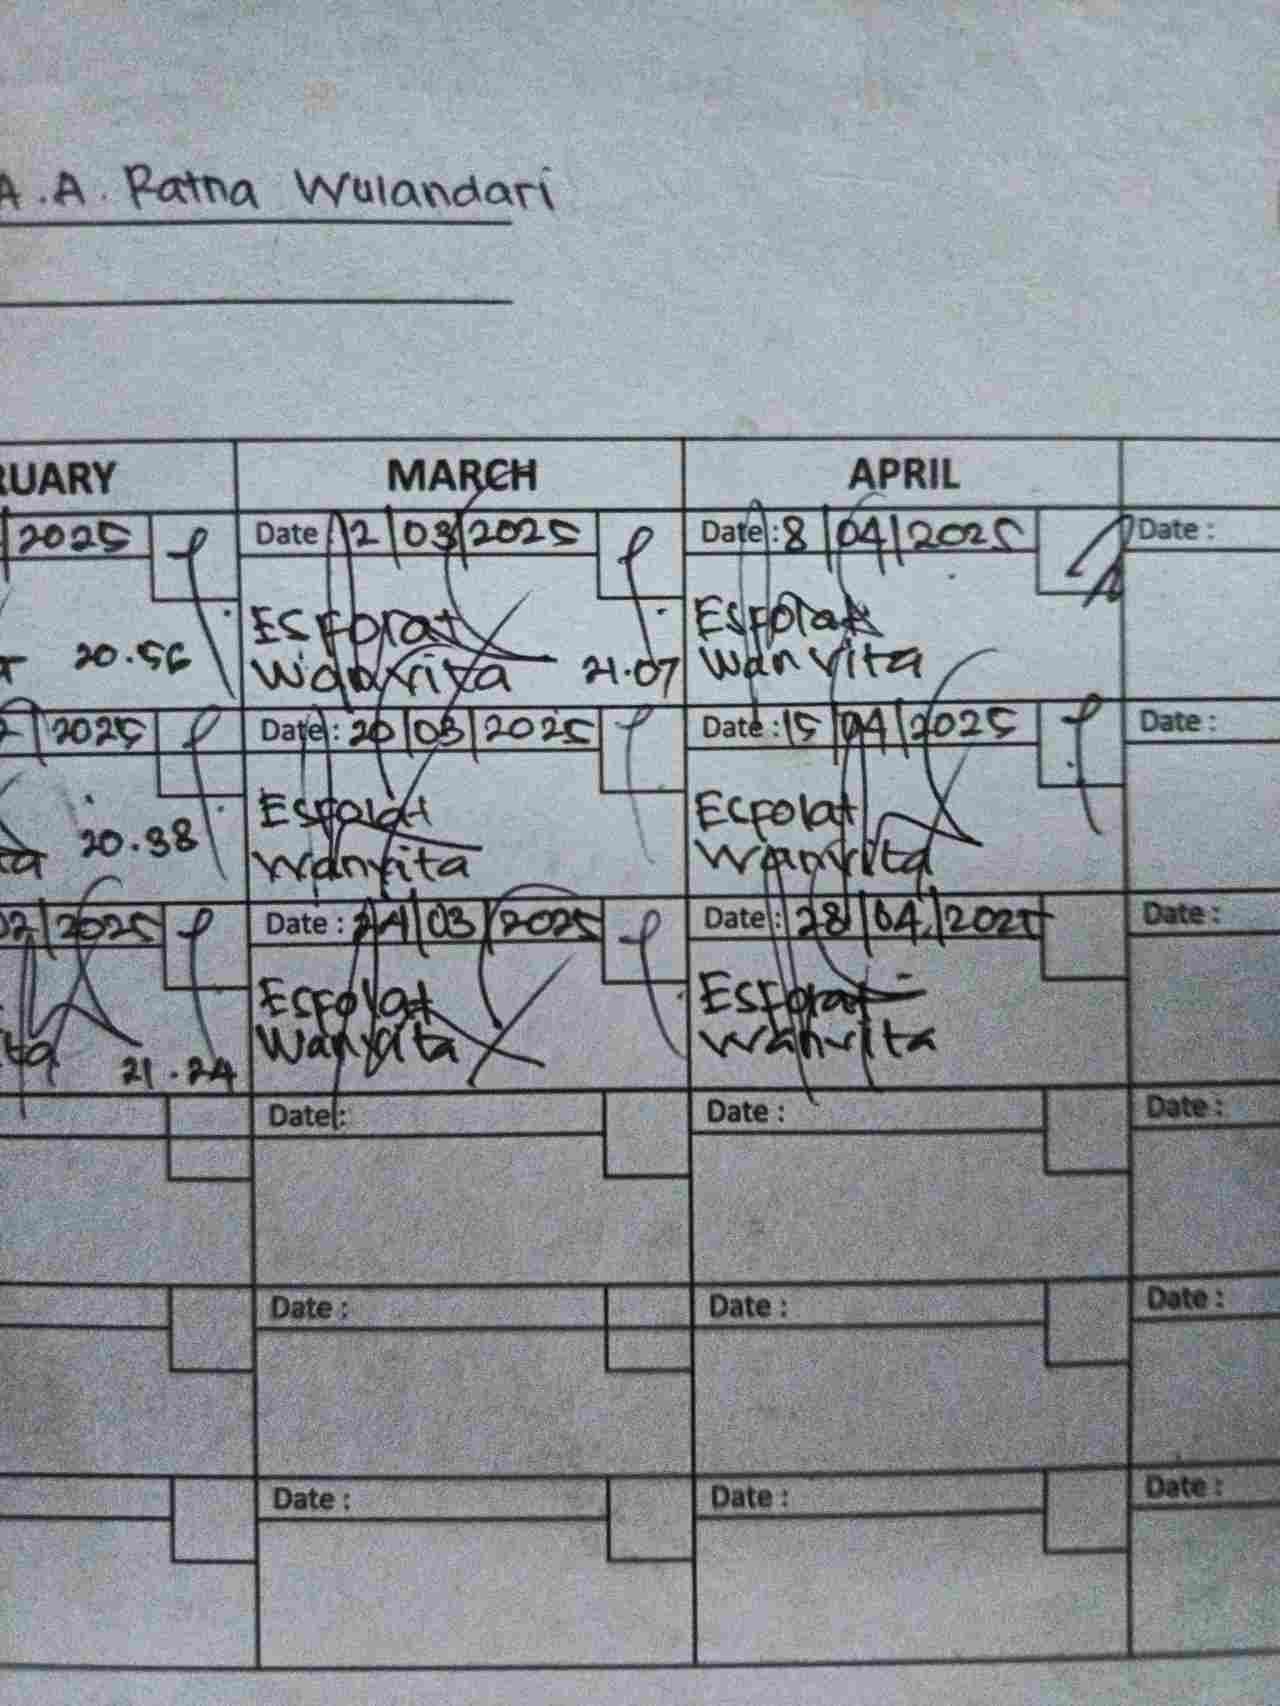 A.A. Ratna Wulandari
RUARY MARCH APRIL
2025 Date : 12/03/2025 Date : 8/04/2025 Date :
20.56 Esforat Wanvita 21.07 Esforat Wanvita
2025 Date : 20/03/2025 Date : 15/04/2025 Date :
ta 20.38 Esfolat Wanvita Ecfolat Wanvita
02/2025 Date : 24/03/2025 Date : 28/04/2025 Date :
ta 21.24 Esfolat Wanvita Esforat Wanvita
Date : Date : Date :
Date : Date : Date :
Date : Date : Date :